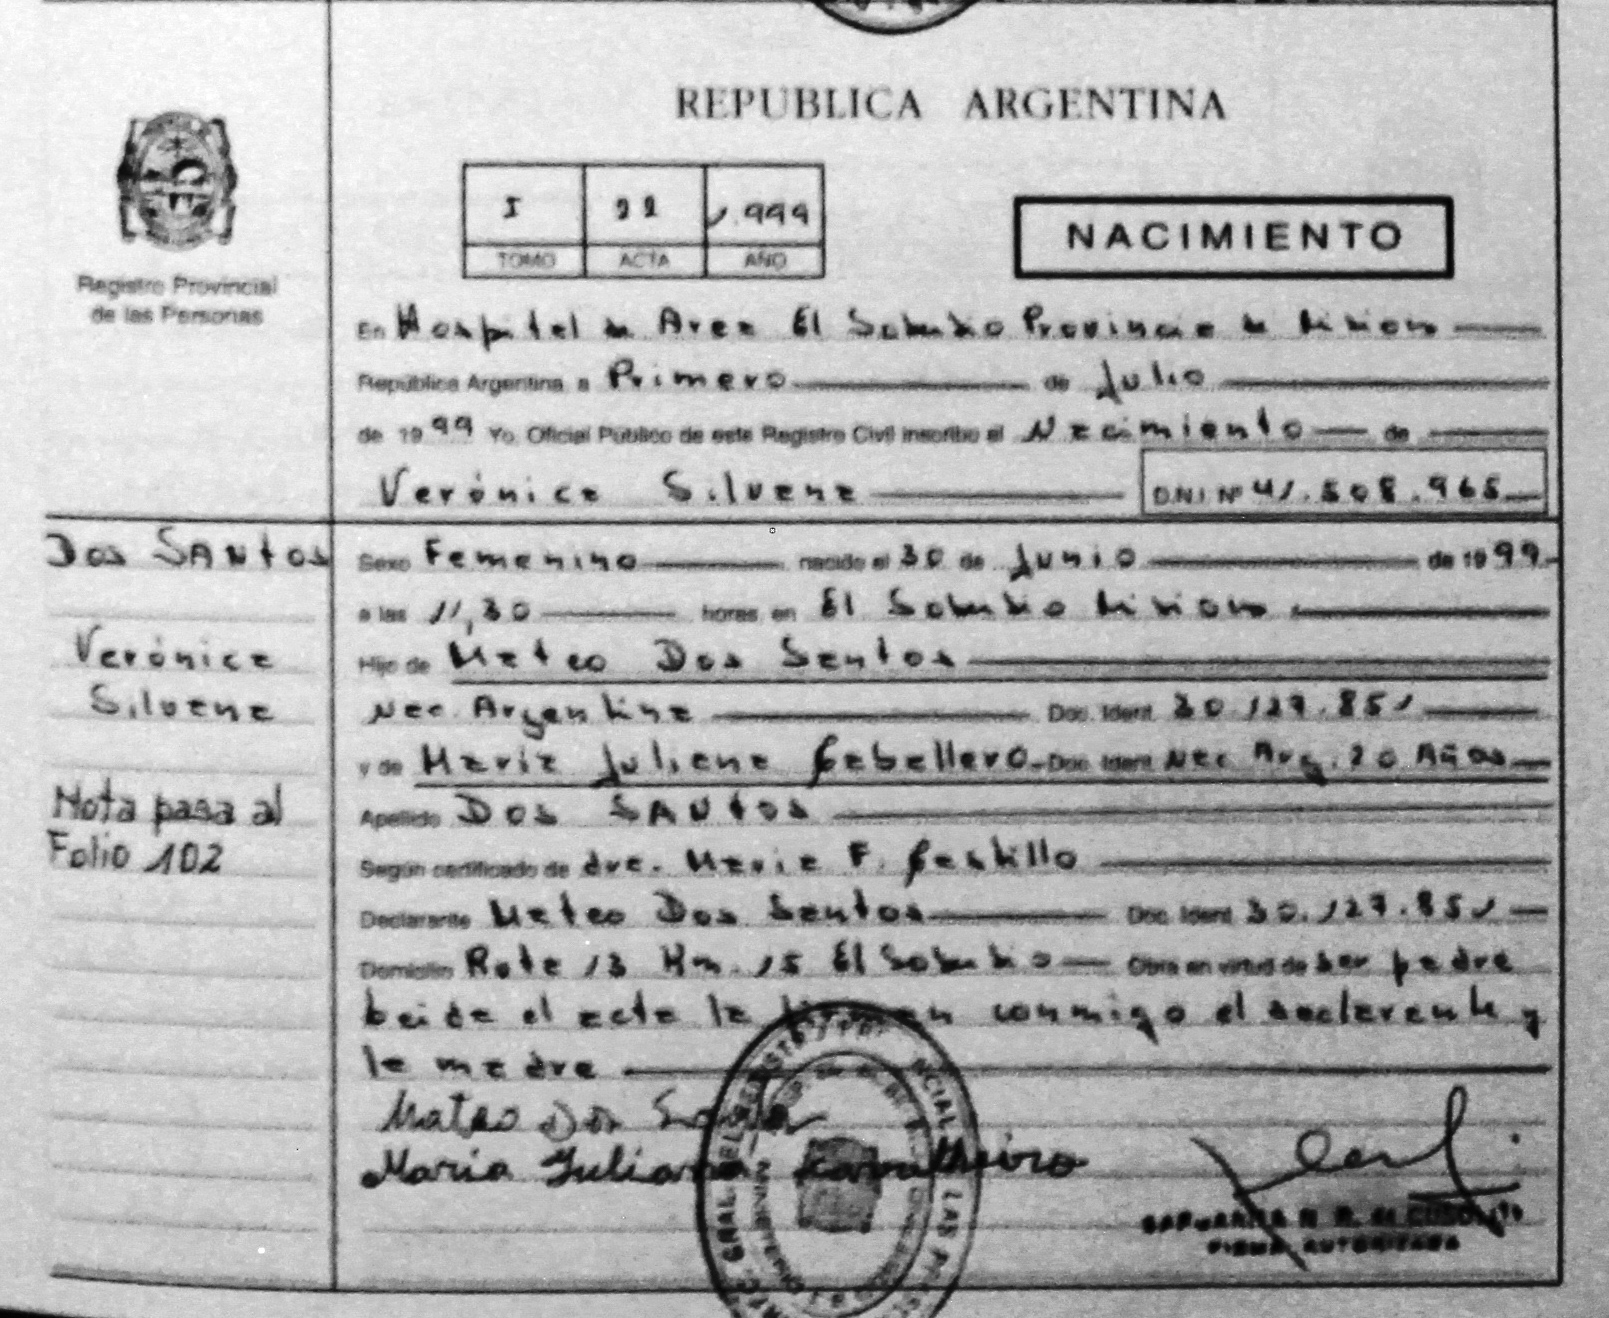 REPUBLICA ARGENTINA
I 22 1.999
TOMO ACTA AÑO
NACIMIENTO
Registro Provincial
de las Personas
En Hospital de Area El Soberbio Provincia de Misiones
República Argentina a Primero de Julio
de 1999 Yo, Oficial Público de este Registro Civil inscribo el Nacimiento de
Verónica Silvana D.N.I. Nº 41.508.965
Dos SANtos
Sexo Femenino nacido el 30 de Junio de 1999
a las 11,30 horas en El Soberbio Misiones
Verónica
Hijo de Mateo Dos Santos
Silvana
Nac. Argentina Doc. Ident. 30.127.851
y de Maria Juliana Caballero Doc. Ident. Nac Arg. 20 Años
Nota pasa al
Folio 102
Apellido DOS SANtos
Según certificado de dra. Maria F. Castillo
Declarante Mateo Dos Santos Doc. Ident. 30.127.851
Domicilio Ruta 13 Km. 15 El Soberbio Obra en virtud de ser padre
Leida el acta la firman conmigo el declarante y
la madre
Mateo Dos Santos
Maria Juliana
FIRMA AUTORIZADA